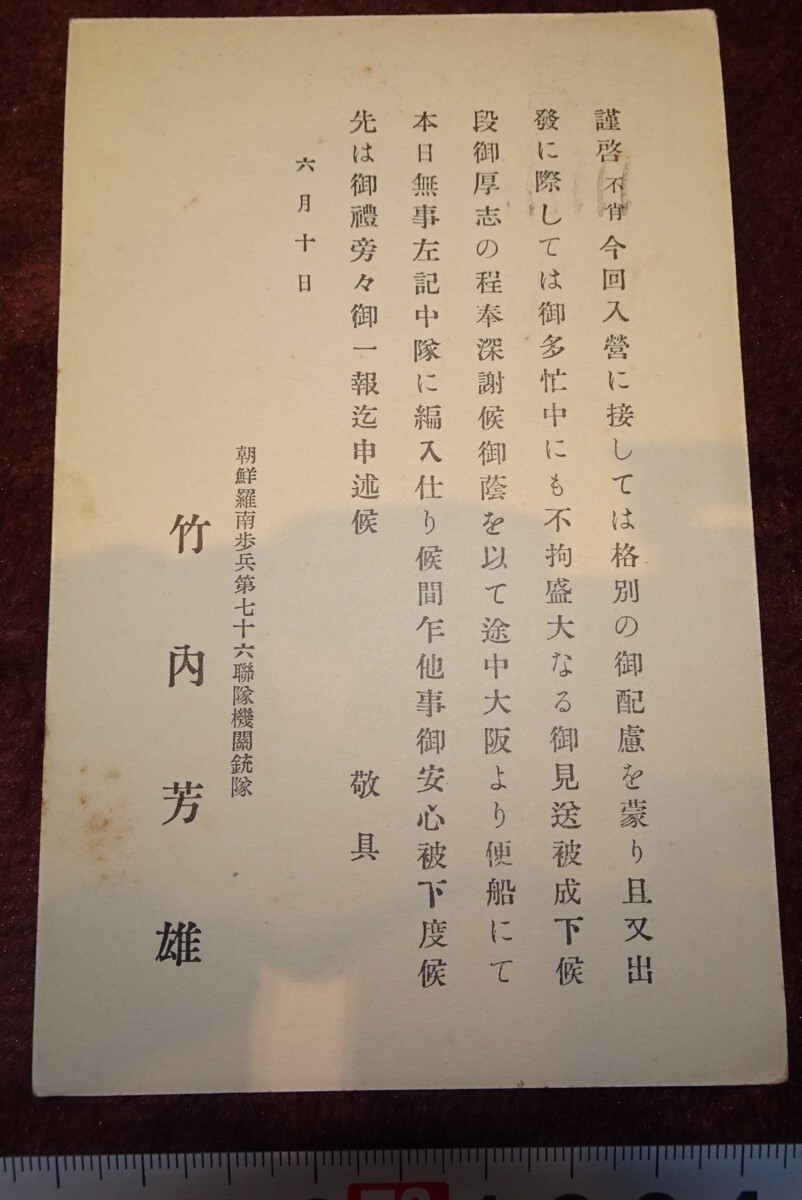 謹啓不肖今回入營に接しては格別の御配慮を蒙り且又出
發に際しては御多忙中にも不拘盛大なる御見送被成下候
段御厚志の程奉深謝候御蔭を以て途中大阪より便船にて
本日無事左記中隊に編入仕り候間乍他事御安心被下度候
先は御禮旁々御一報迄申述候
敬具
六月十日
朝鮮羅南歩兵第七十六聯隊機關銃隊
竹內芳雄